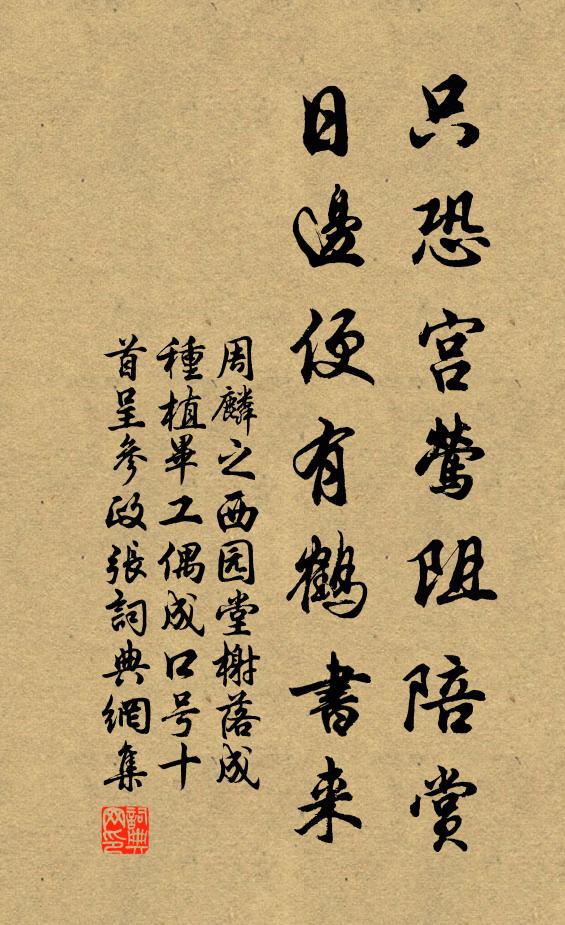 只恐宫莺阻陪赏
日邊便有鹤書来
周麟之西园堂榭落成
種植畢工偶成口号十
首呈參政張詞典網集
詞典网印